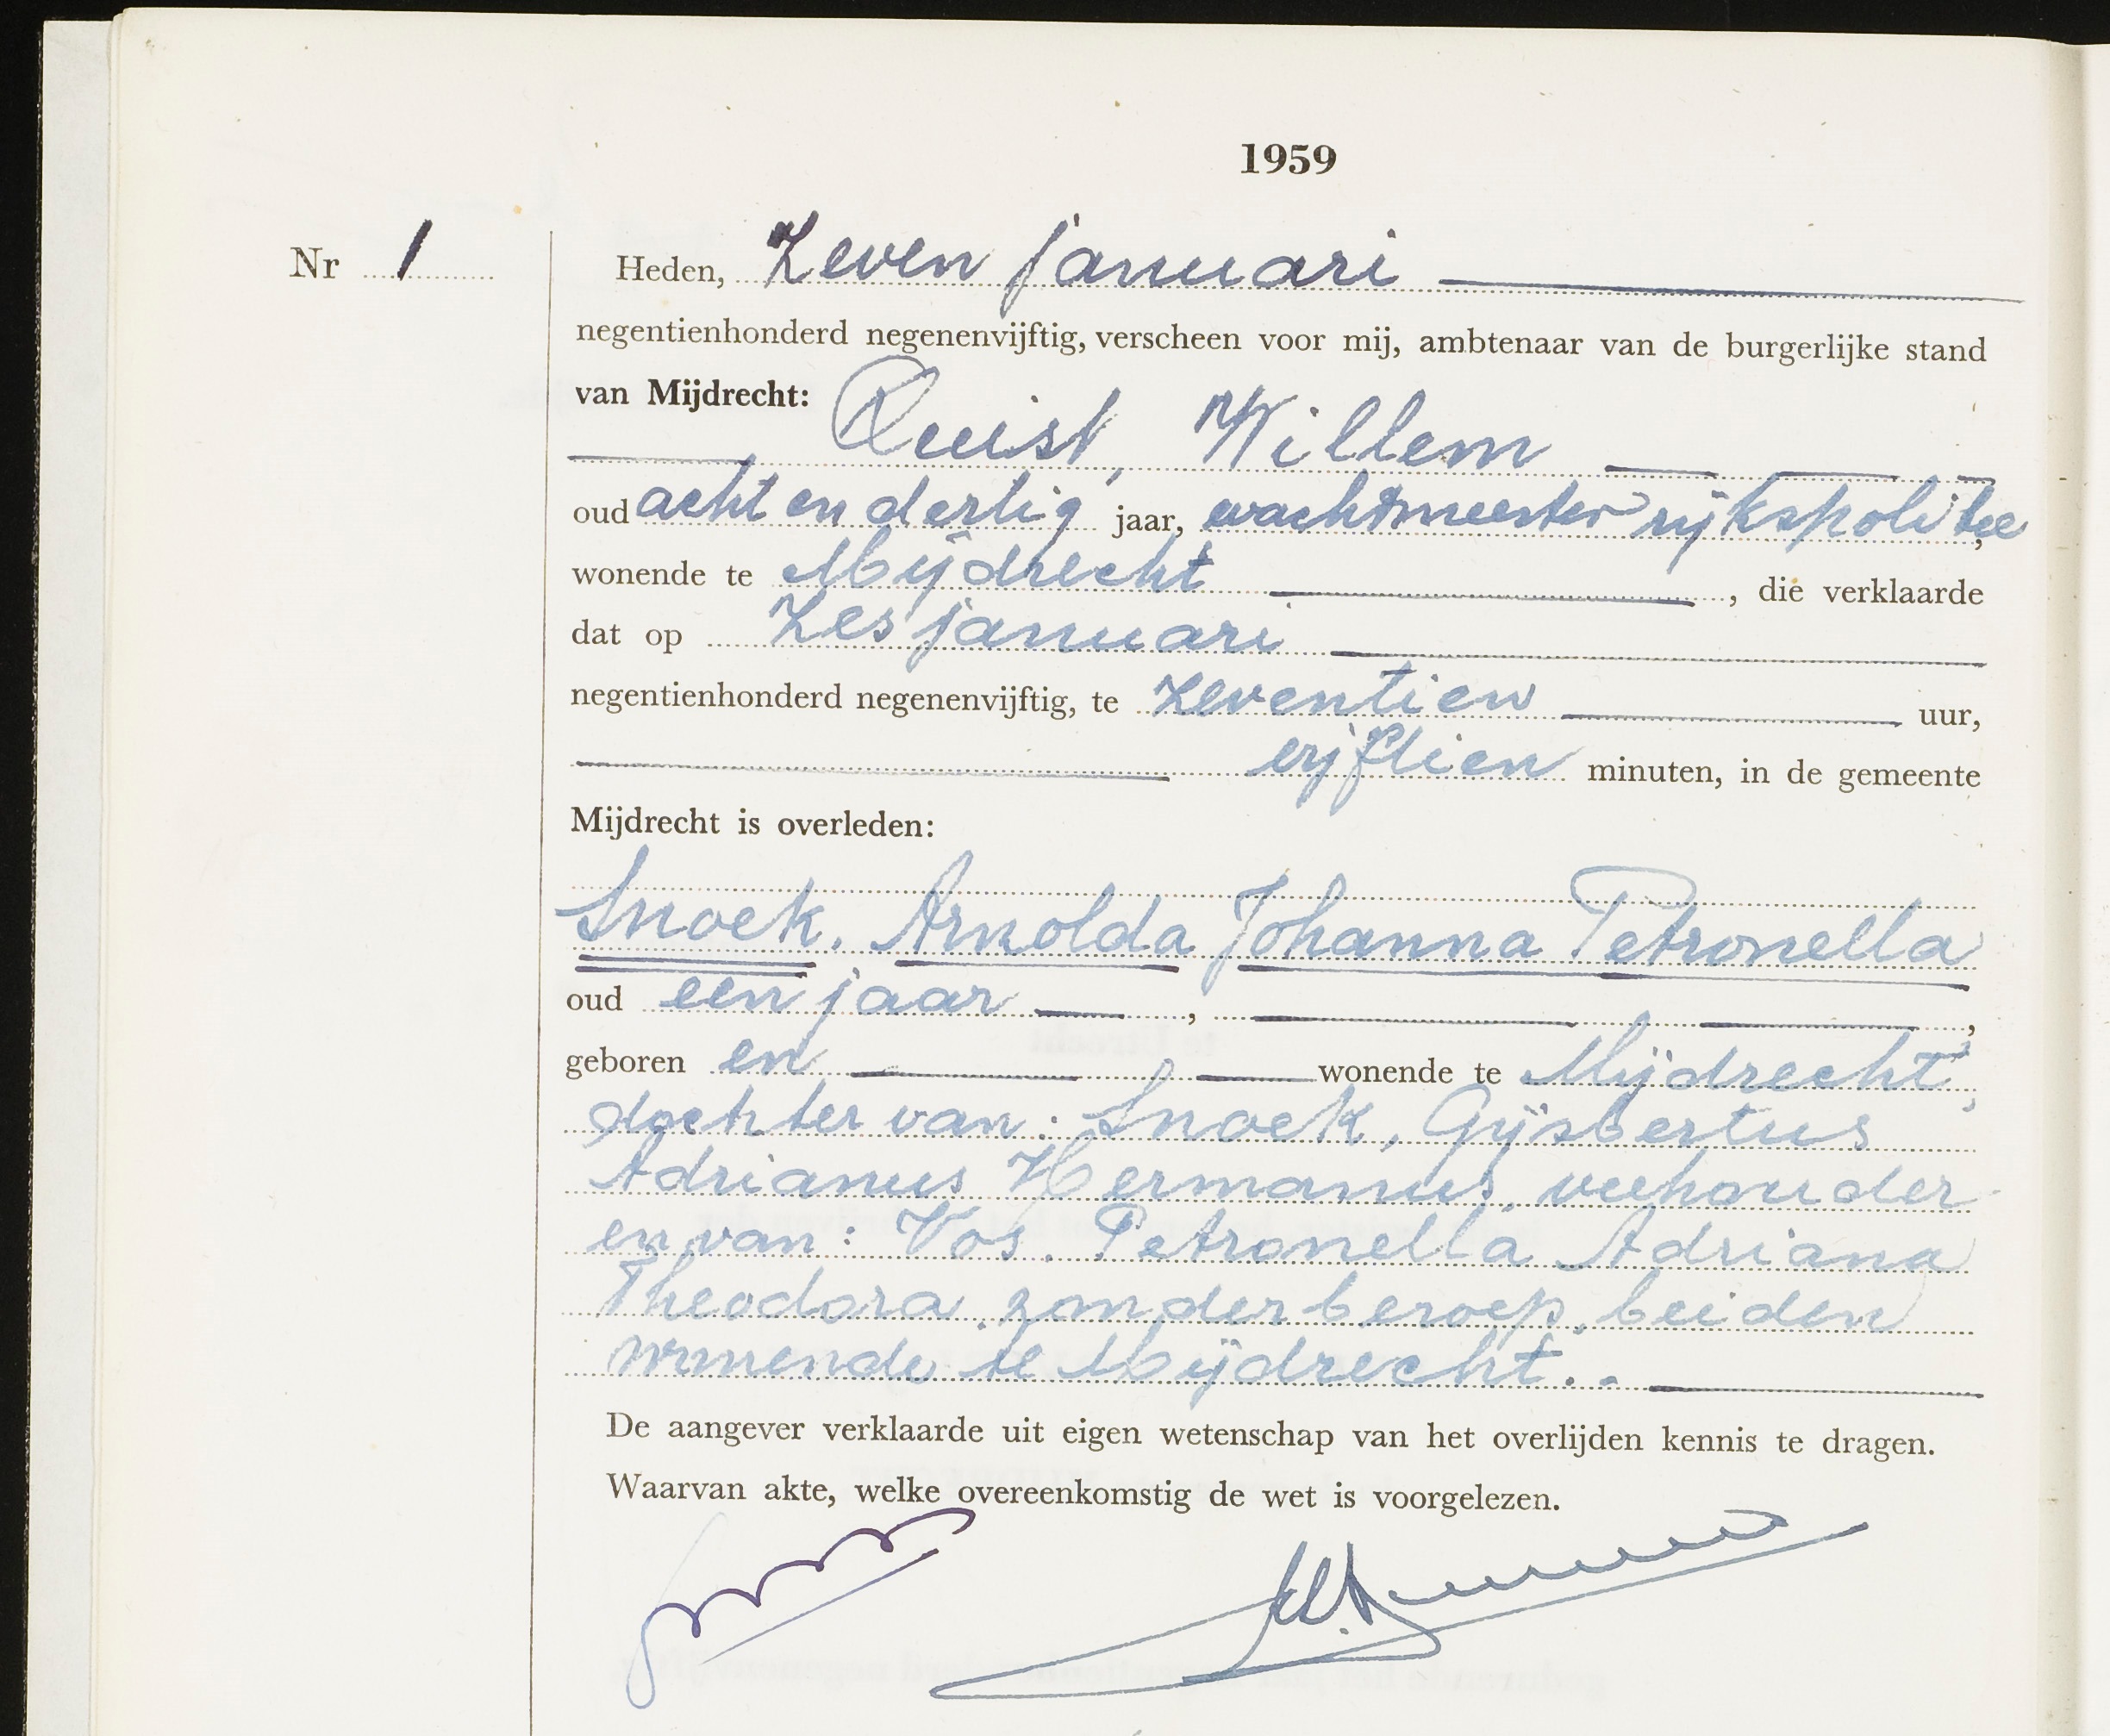 1959
Nr 1
Heden, Zeven januari
negentienhonderd negenenvijftig, verscheen voor mij, ambtenaar van de burgerlijke stand
van Mijdrecht:
Quist, Willem
oud acht en dertig jaar, wachtmeester rijkspolitie,
wonende te Mijdrecht, die verklaarde
dat op Zes januari
negentienhonderd negenenvijftig, te zeventien uur,
vijftien minuten, in de gemeente
Mijdrecht is overleden:
Snoek, Arnolda Johanna Petronella
oud een jaar, ,
geboren en wonende te Mijdrecht,
dochter van: Snoek, Gijsbertus
Adrianus Hermanus, veehouder
en van: Vos, Petronella Adriana
Theodora, zonder beroep, beiden
wonende te Mijdrecht..
De aangever verklaarde uit eigen wetenschap van het overlijden kennis te dragen.
Waarvan akte, welke overeenkomstig de wet is voorgelezen.